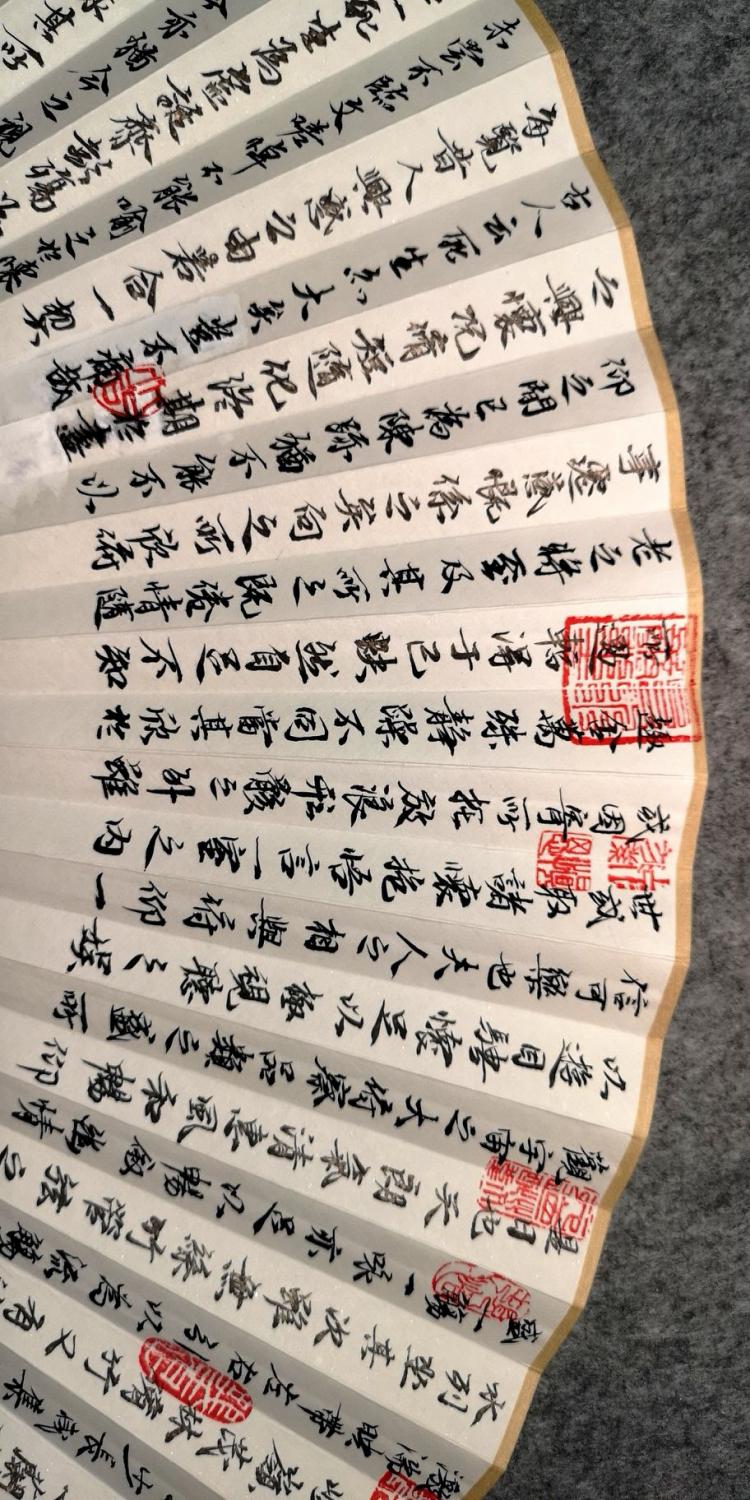 激湍暎帶左右引以為流觴
水列坐其次雖無絲竹管弦之
盛一觴一詠亦足以暢敘幽情
是日也天朗氣清惠風和暢仰
觀宇宙之大俯察品類之盛所
以遊目騁懷足以極視聽之娛
信可樂也夫人之相與俯仰一
世或取諸懷抱悟言一室之內
或因寄所託放浪形骸之外雖
趣舍萬殊靜躁不同當其欣於
所遇輒得于己快然自足不知
老之將至及其所之既惓情隨
事遷感慨係之矣向之所欣俛
仰之閒已為陳跡猶不能不以
之興懷況脩短隨化終期於盡
古人云死生亦大矣豈不痛哉
每覽昔人興感之由若合一契
未嘗不臨文嗟悼不能喻之於懷
一死生為虛誕齊彭殤
亦猶今之視